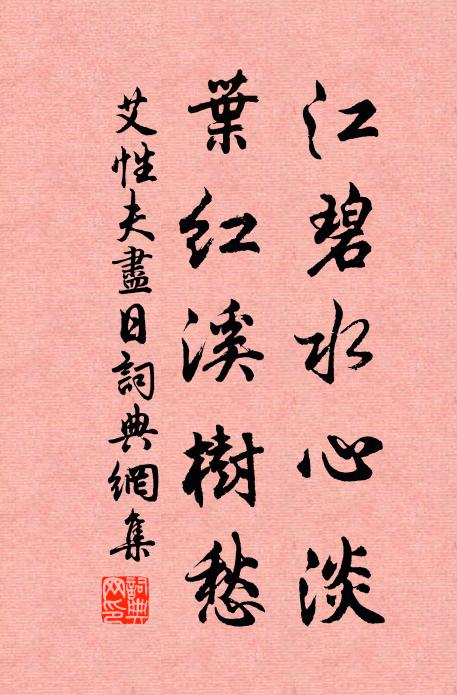 江碧水心淡
葉紅溪樹愁
艾性夫盡日詞典網集
詞典網印